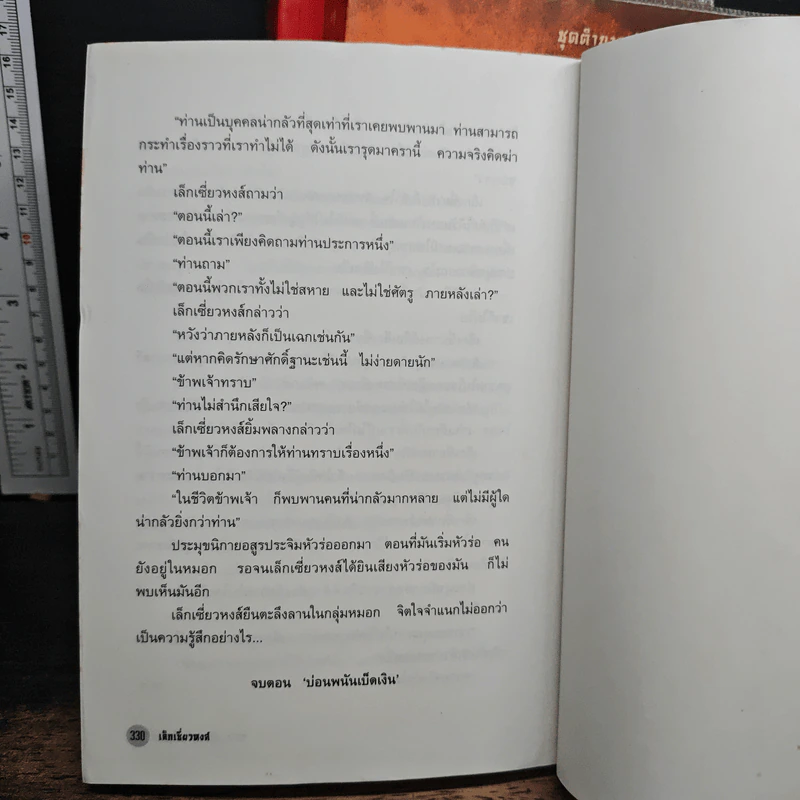 ชุดตำนา
“ท่านเป็นบุคคลน่ากลัวที่สุดเท่าที่เราเคยพบพานมา ท่านสามารถ
กระทำเรื่องราวที่เราทำไม่ได้ ดังนั้นเรารุดมาครานี้ ความจริงคิดฆ่า
ท่าน”
เล็กเซี่ยวหงส์ถามว่า
“ตอนนี้เล่า?”
“ตอนนี้เราเพียงคิดถามท่านประการหนึ่ง”
“ท่านถาม”
“ตอนนี้พวกเราทั้งไม่ใช่สหาย และไม่ใช่ศัตรู ภายหลังเล่า?”
เล็กเซี่ยวหงส์กล่าวว่า
“หวังว่าภายหลังก็เป็นเฉกเช่นกัน”
“แต่หากคิดรักษาศักดิ์ฐานะเช่นนี้ ไม่ง่ายดายนัก”
“ข้าพเจ้าทราบ”
“ท่านไม่สำนึกเสียใจ?”
เล็กเซี่ยวหงส์ยิ้มพลางกล่าวว่า
“ข้าพเจ้าก็ต้องการให้ท่านทราบเรื่องหนึ่ง”
“ท่านบอกมา”
“ในชีวิตข้าพเจ้า ก็พบพานคนที่น่ากลัวมากหลาย แต่ไม่มีผู้ใด
น่ากลัวยิ่งกว่าท่าน”
ประมุขนิกายอสูรประจิมหัวร่อออกมา ตอนที่มันเริ่มหัวร่อ คน
ยังอยู่ในหมอก รอจนเล็กเซี่ยวหงส์ได้ยินเสียงหัวร่อของมัน ก็ไม่
พบเห็นมันอีก
เล็กเซี่ยวหงส์ยืนตะลึงลานในกลุ่มหมอก จิตใจจำแนกไม่ออกว่า
เป็นความรู้สึกอย่างไร...
จบตอน ‘บ่อนพนันเบ็ดเงิน’
330 เล็กเซี่ยวหงส์